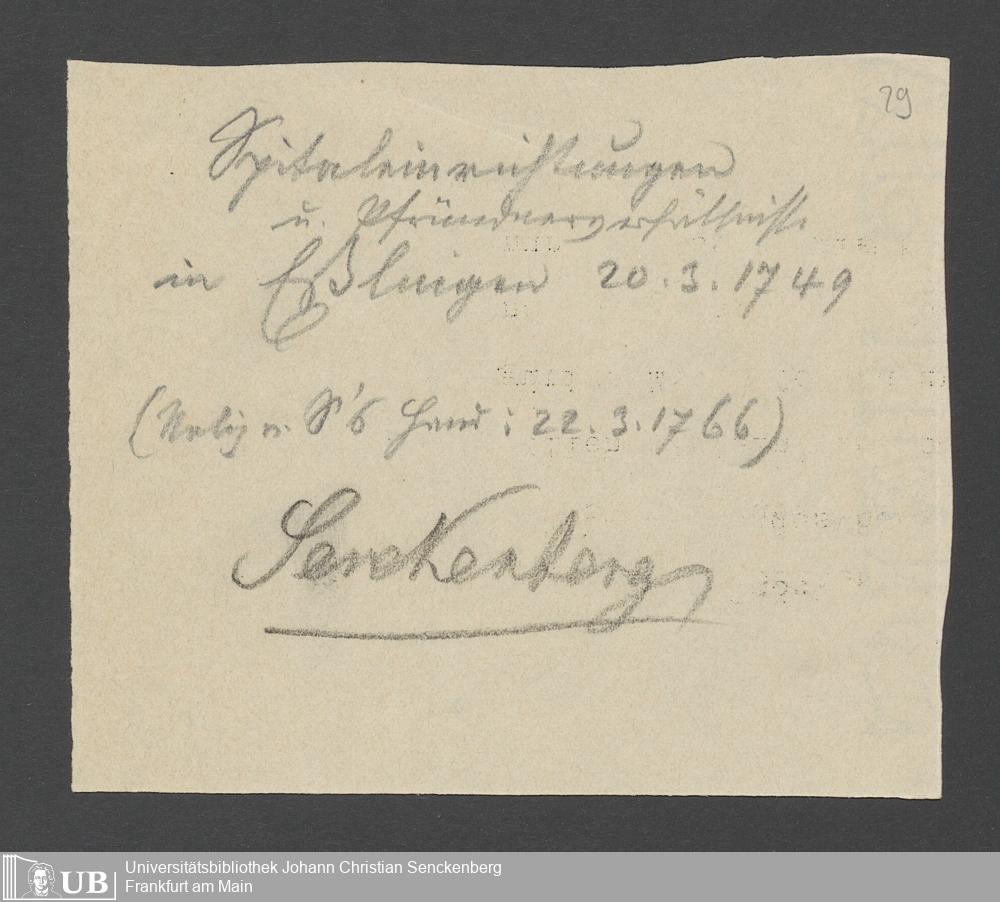 29
Spitaleinrichtungen
u. Pfründnerverhältnisse
in Eßlingen 20.3.1749
(Notiz v. S's Hand: 22.3.1766)
Senckenberg
UB
Universitätsbibliothek Johann Christian Senckenberg
Frankfurt am Main